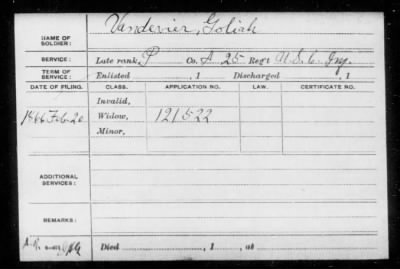 NAME OF SOLDIER: Vandevier, Goliah
SERVICE: Late rank, P Co. A 25 Reg't U.S.C. Inf.
TERM OF SERVICE: Enlisted , 1 Discharged , 1
DATE OF FILING. CLASS. APPLICATION NO. LAW. CERTIFICATE NO.
Invalid,
1866 Feb 20 Widow, 121522
Minor,
ADDITIONAL SERVICES:
REMARKS:
Died , 1 , at